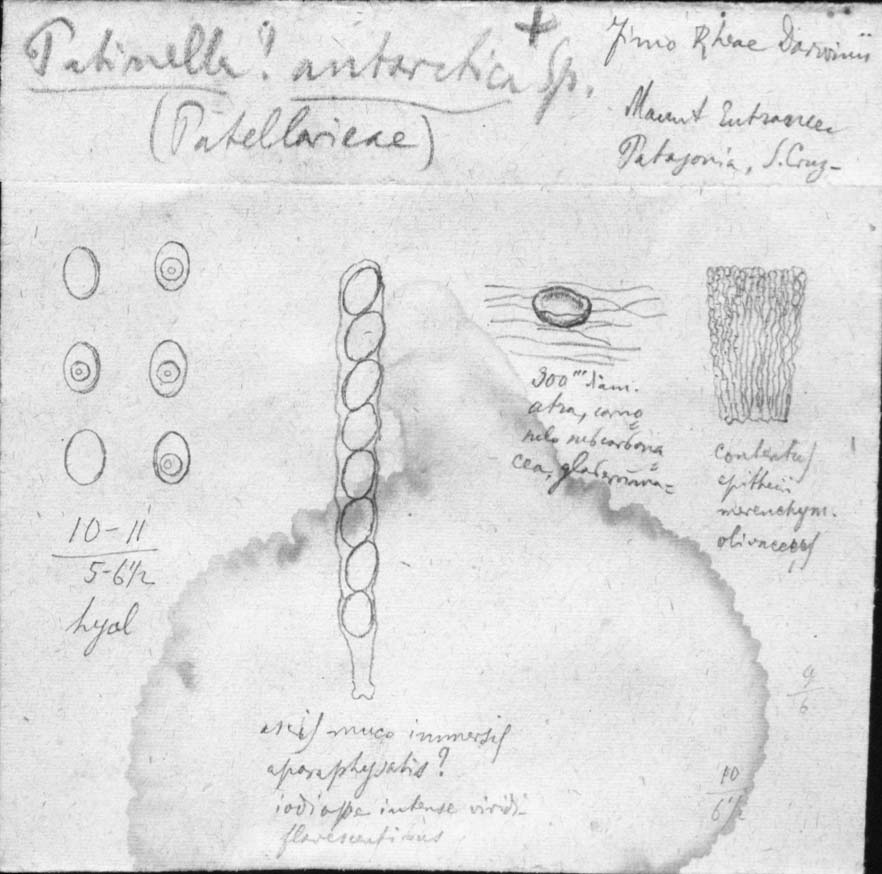 Patinella? antarctica + Sp.
(Patellarieae)
Fimo Rheae Darwinii
Mount Entrance
Patagonia, S. Cruz-
300''' diam.
atra, carno
sulo subcarbona
cea, glaberrima=
contextus
epithecii
merenchym.
olivaceus
10-11
5-6 1/2
hyal
ascis muco immersis
aparaphysatis?
iodi ope intense viridi-
flavescentibus
9
6
10
6 1/2